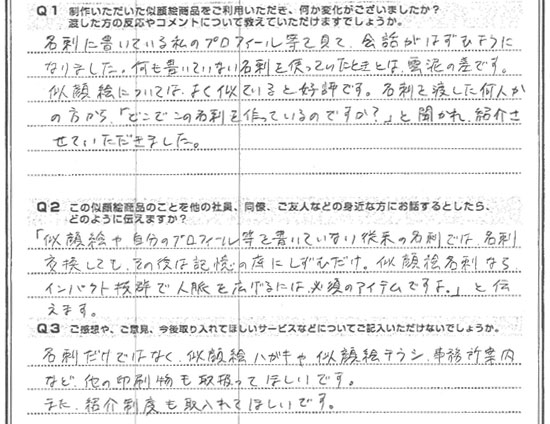 Q1 制作いただいた似顔絵商品をご利用いただき、何か変化がございましたか？
渡した方の反応やコメントについて教えていただけますでしょうか。
名刺に書いている私のプロフィール等を見て、会話がはずむように
なりました。何も書いていない名刺を使っていたときとは、雲泥の差です。
似顔絵については、よく似ていると好評です。名刺を渡した何人か
の方から、「どこでこの名刺を作っているのですか？」と聞かれ、紹介さ
せていただきました。
Q2 この似顔絵商品のことを他の社員、同僚、ご友人などの身近な方にお話するとしたら、
どのように伝えますか？
「似顔絵や自分のプロフィール等を書いていない従来の名刺では、名刺
交換しても、その後は記憶の底にしずむだけ。似顔絵名刺なら
インパクト抜群で人脈を広げるには必須のアイテムですよ。」と伝
えます。
Q3 ご感想や、ご意見、今後取り入れてほしいサービスなどについてご記入いただけないでしょうか。
名刺だけではなく、似顔絵ハガキや似顔絵チラシ、事務所案内
など、他の印刷物も取扱ってほしいです。
また、紹介制度も取入れてほしいです。